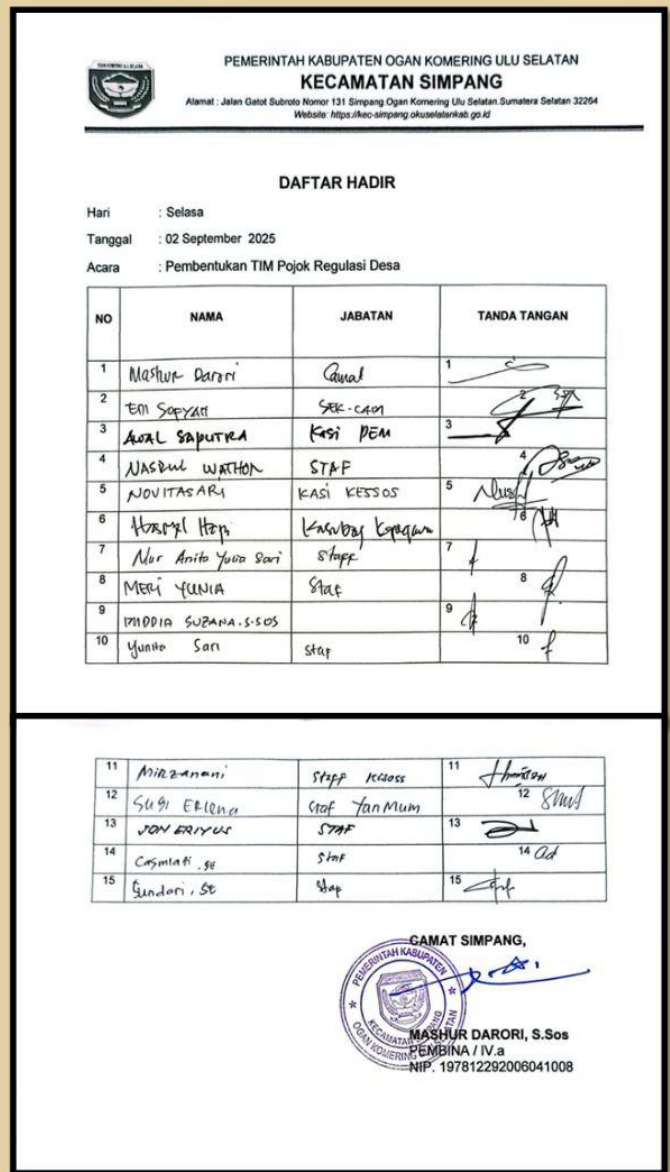 PEMERINTAH KABUPATEN OGAN KOMERING ULU SELATAN
KECAMATAN SIMPANG
Alamat : Jalan Gatot Subroto Nomor 131 Simpang Ogan Komering Ulu Selatan Sumatera Selatan 32264
Website: https://kec-simpang.okuselatankab.go.id
DAFTAR HADIR
Hari : Selasa
Tanggal : 02 September 2025
Acara : Pembentukan TIM Pojok Regulasi Desa
NO NAMA JABATAN TANDA TANGAN
1 Mashur Darori Camat 1
2 Eni Sopyan SEK-CAM 2
3 AWAL SAPUTRA Kasi PEM 3
4 NASRUL WATHON STAF 4
5 NOVITASARI KASI KESSOS 5
6 Kasubag 6
7 Nur Anita Yulia Sari Staff 7
8 MERI YUNIA Staf 8
9 SUZANA.S.SOS 9
10 Yunita Sari staf 10
11 Mirzanani Staff 11
12 SUGI ERLENA Staf YanMum 12
13 JON ERIYUS STAF 13
14 Casmiati .SE Staf 14
15 Sundari, SE Staf 15
CAMAT SIMPANG,
PEMERINTAH KABUPATEN
KECAMATAN SIMPANG
OGAN KOMERING ULU SELATAN
MASHUR DARORI, S.Sos
PEMBINA / IV.a
NIP. 197812292006041008